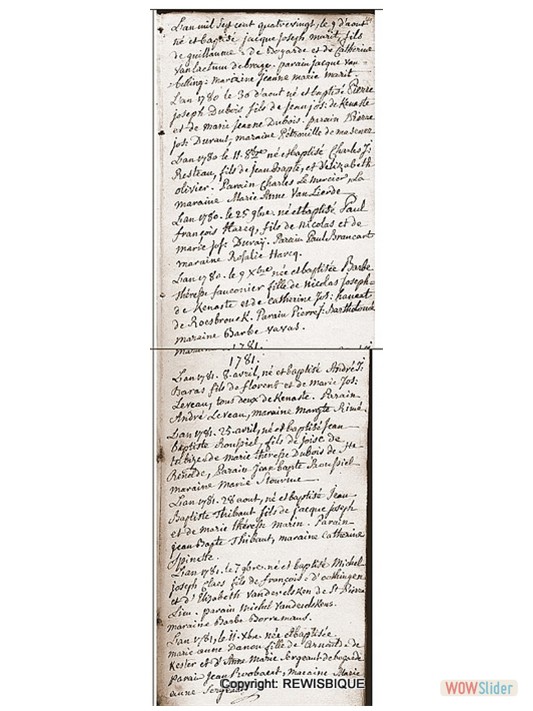 L'an mil sept cent quatrevingt, le 9 d'aout
né et baptisé jacque joseph marit, fils
de guillaume de Bogarde et de Catherine
parain jacque van
maraine jeanne marie marit.
L'an 1780 le 30 d'aout né et baptisé Pierre
joseph Dubois fils de jean jos: de Kenaste
et de marie jeanne Dubois. parain Pierre
jos: Durant, maraine Pétronille
L'an 1780 le 11. 8bre né et baptisé Charles J:
Resteau, fils de Jean Bapte, et d'elizabeth
olivier. Parain Charles Le mercier, La
maraine Marie Anne Van Lierde
L'an 1780. le 25 9bre. né et baptisé Paul
françois Harcq, fils de nicolas et de
marie jos: Duray. Parain Paul Brancart
maraine Rosalie Harcq.
L'an 1780. le 9 Xbre née et baptisée Barbe
thérèse fauconier fille de nicolas joseph
de Kenaste et de catherine jos:
de Roesbrouck. Parain Pierre J: Bartholomé
maraine Barbe vavas.
1781.
1781.
L'an 1781. 8. avril, né et baptisé André J:
Baras fils de florent et de marie Jos:
Leveau, tous deux de Kenaste. Parain
André Leveau, maraine Margte
L'an 1781. 25. avril, né et baptisé jean
Baptiste Roussiel, fils de
tubize, de marie thérèse Dubois de Ste
Renelde, Parain jean bapte Roussiel
maraine Marie
L'an 1781. 28 aout, né et baptisé Jean
Baptiste Thibaut fils de jacque joseph
et de marie thérèse marin. Parain
jean Bapte Thibaut, maraine Catherine
Spinette.
L'an 1781. le 7 9bre. né et baptisé Michel
joseph Claes fils de françois d'
et d'Elizabeth vanderelsken de St Pierre
Lieu. parain michel
maraine Barbe Borremans.
L'an 1781, le 11. Xbre. née et baptisée
marie anne Danou fille de de
Kester et d'Anne Marie Sergeant de bogarde
parain Jean maraine Marie
anne
Copyright: REWISBIQUE
WOWSlider